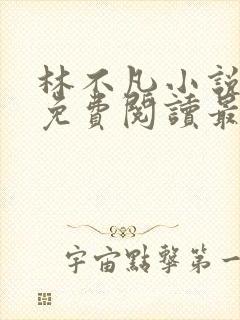 林不凡小說
免費閱讀最
宇宙點擊第一